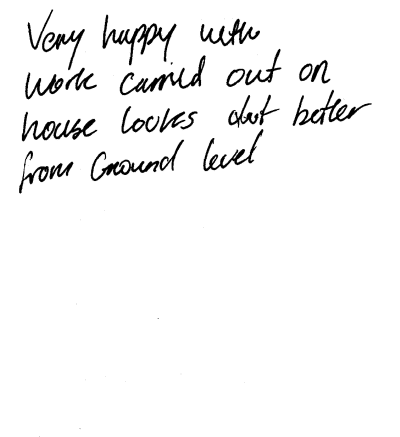 Very happy with
work carried out on
house looks alot better
from Ground level